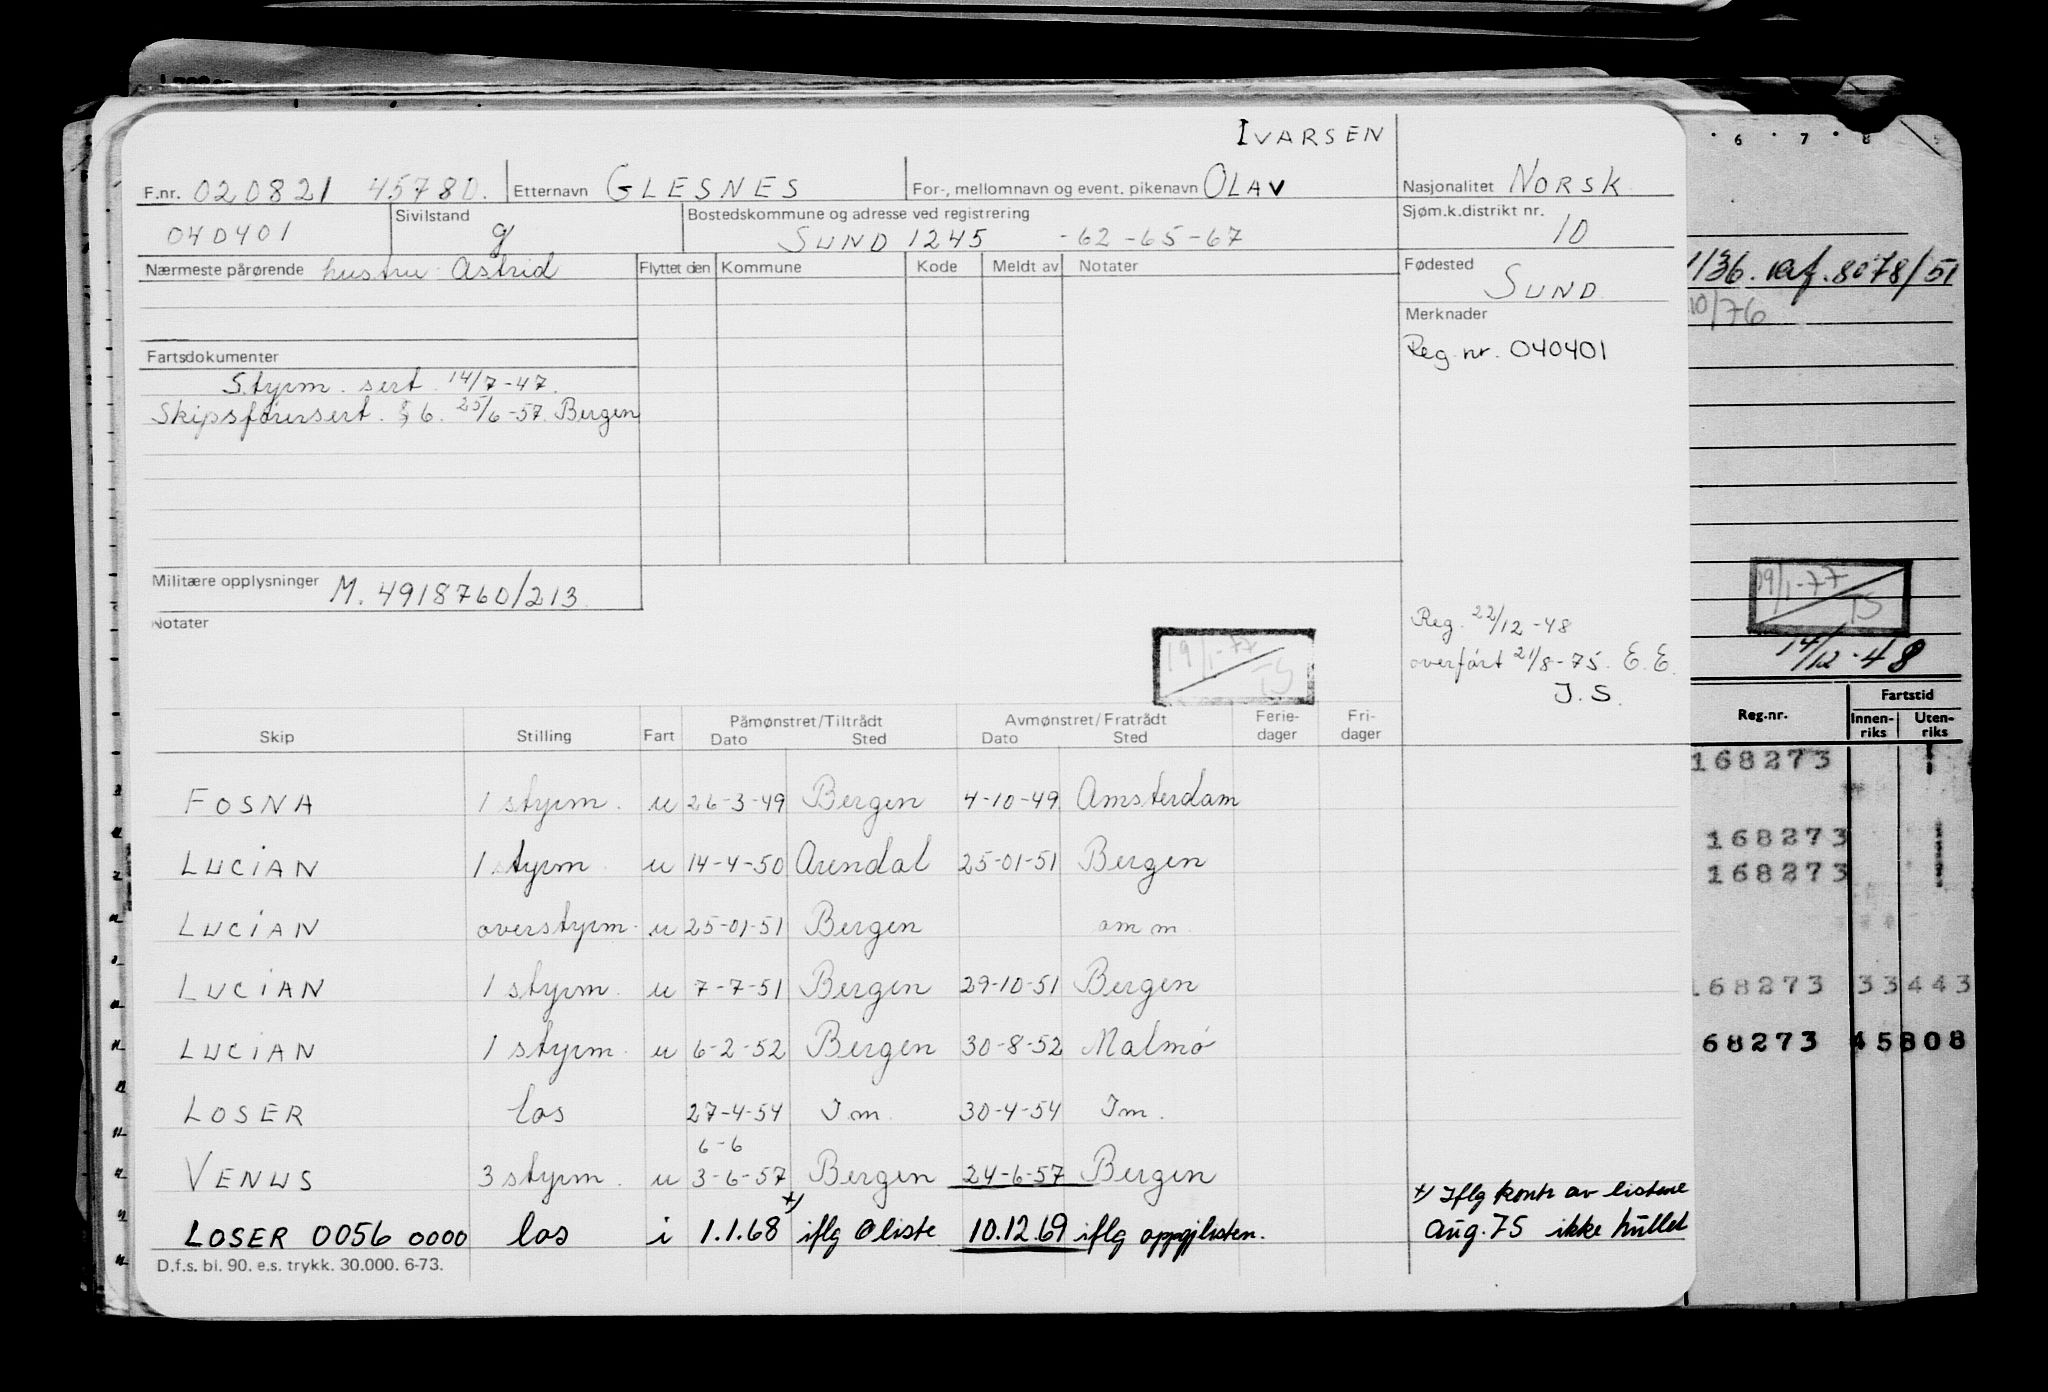 IVARSEN
F.nr. 020821 45780. Etternavn GLESNES For-, mellomnavn og event. pikenavn OLAV Nasjonalitet NORSK
040401 Sivilstand g Bostedskommune og adresse ved registrering SUND 1245 -62 -65 -67 Sjøm.k.distrikt nr. 10
Nærmeste pårørende hustru Astrid Flyttet den Kommune Kode Meldt av Notater Fødested SUND
Merknader
Reg. nr. 040401
Fartsdokumenter
Styrm. sert. 14/7-47.
Skipsførersert. § 6. 25/6-57. Bergen
Militære opplysninger M. 4918760/213
Notater
19/1-77
TS
Reg. 22/12-48
overført 21/8-75. E.E.
J.S.
Skip Stilling Fart Påmønstret/Tiltrådt Dato Sted Avmønstret/Fratrådt Dato Sted Ferie-dager Fri-dager
FOSNA 1 styrm. u 26-3-49 Bergen 4-10-49 Amsterdam
LUCIAN 1 styrm u 14-4-50 Arendal 25-01-51 Bergen
LUCIAN overstyrm. u 25-01-51 Bergen om m.
LUCIAN 1 styrm. u 7-7-51 Bergen 29-10-51 Bergen
LUCIAN 1 styrm. u 6-2-52 Bergen 30-8-52 Malmö
LOSER los 27-4-54 I.m. 30-4-54 Im.
6-6
VENUS 3 styrm. u 3-6-57 Bergen 24-6-57 Bergen
LOSER 0056 0000 los i 1.1.68 x) iflg Oliste 10.12.69 iflg oppgjlisten.
x) Iflg kontr av listene
Aug. 75 ikke hullet
D.f.s. bl. 90. e.s. trykk. 30.000. 6-73.
6 7 8
1136. ref. 8078/51
10/76
19/1-77
TS
14/12-48
Reg.nr. Fartstid
Innen-riks Uten-riks
168273
168273
168273
168273 33443
68273 45808